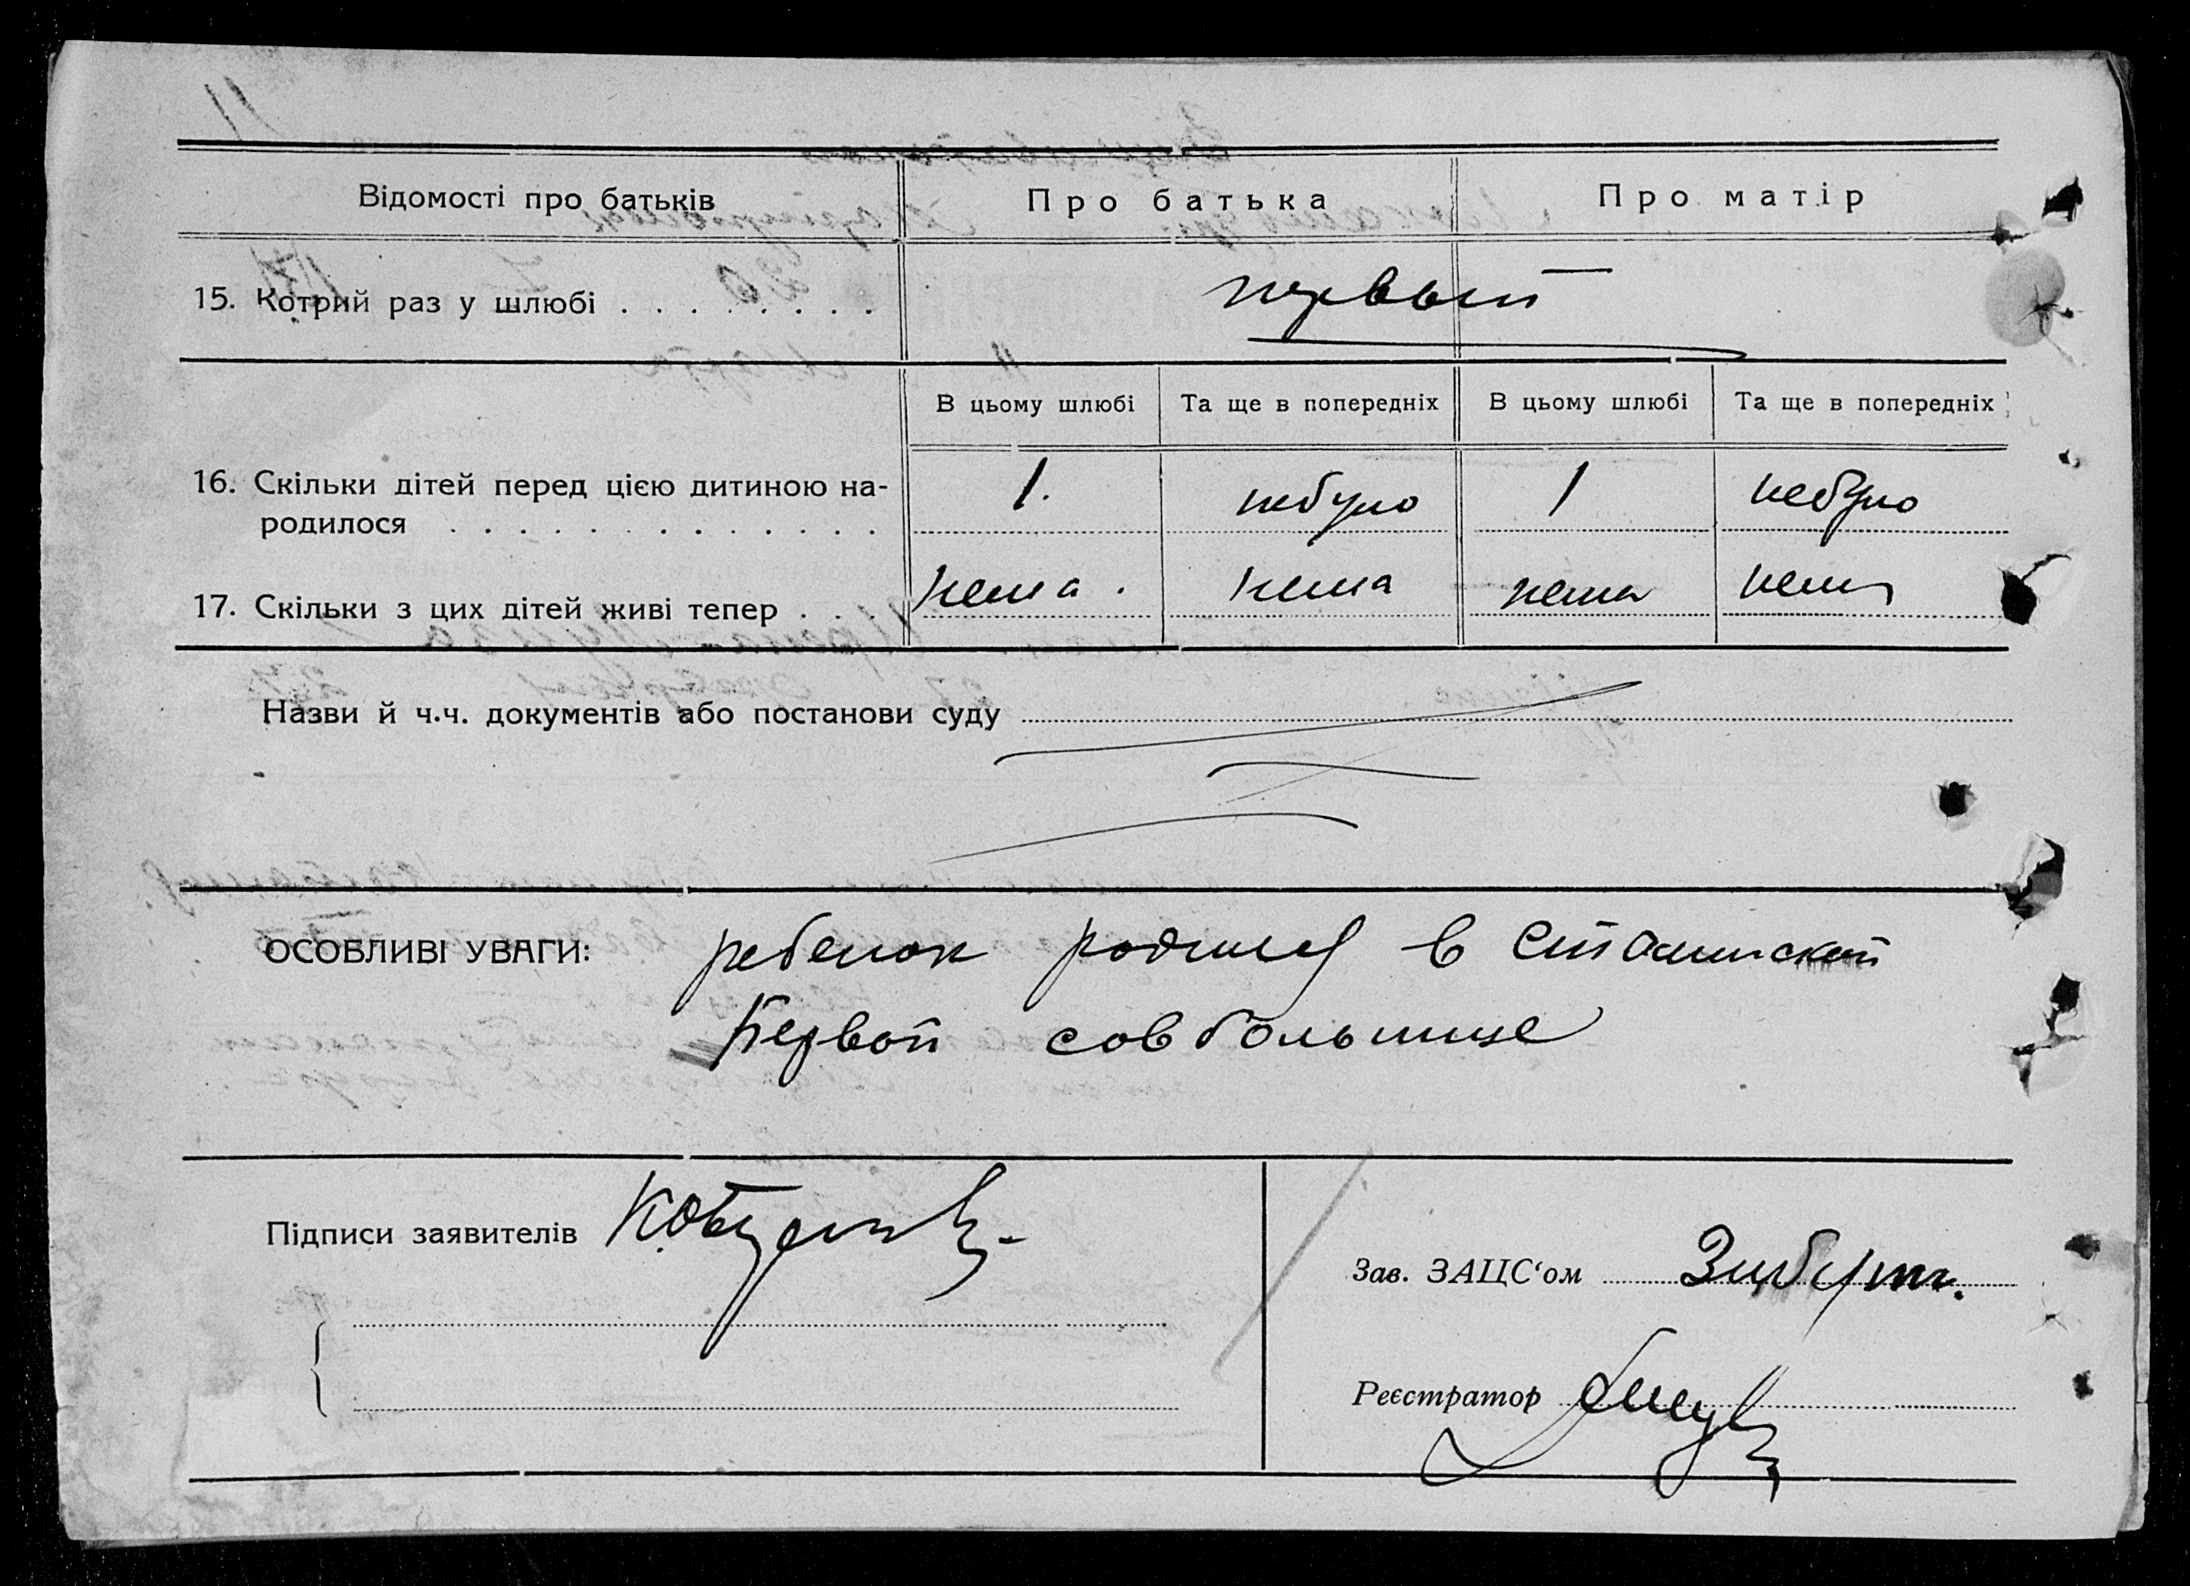 Відомості про батьків
Про батька
Про матір
15. Котрий раз у шлюбі . . . . . . . .
первый
В цьому шлюбі
Та ще в попередніх
В цьому шлюбі
Та ще в попередніх
16. Скільки дітей перед цією дитиною на-
родилося . . . . . . . . . . . .
1.
небуло
1
небуло
17. Скільки з цих дітей живі тепер . . .
нема.
нема
нема
нема
Назви й ч.ч. документів або постанови суду
ОСОБЛИВІ УВАГИ:
ребенок родился в Сталинской
Первой совбольнице
Підписи заявителів
Зав. ЗАЦС‘ом
Зиберт.
Реєстратор